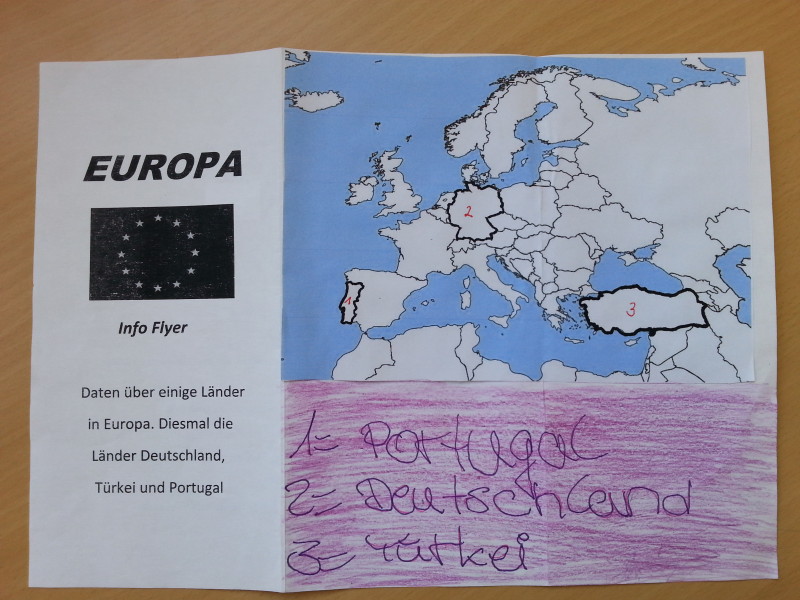 EUROPA
Info Flyer
Daten über einige Länder
in Europa. Diesmal die
Länder Deutschland,
Türkei und Portugal
2
1
3
1= Portugal
2= Deutschland
3= Türkei